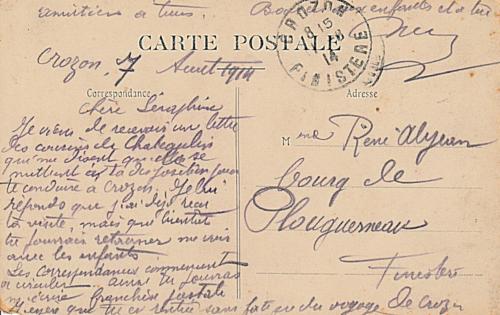 amitiés à tous
CROZON
8 15
14
FINISTERE
CARTE POSTALE
Crozon, 7 Aout 1914
Correspondance
Adresse
Chère Séraphine
Je viens de recevoir un lettre
des cousins de
qui me disent qu'elles se
mettent a ta disposition pour
te conduire à Crozon. Je lui
réponds que j'ai déjà recu
ta visite, mais que bientot
tu pourrais retourner me voir
avec les enfants.
Les correspondances commencent
a circuler ainsi tu pourras
m'écrire franchise postale
J'espère que tu es rentrée sans fatigue du voyage de Crozon
Mme René
bourg de
Plouguerneau
Finistère